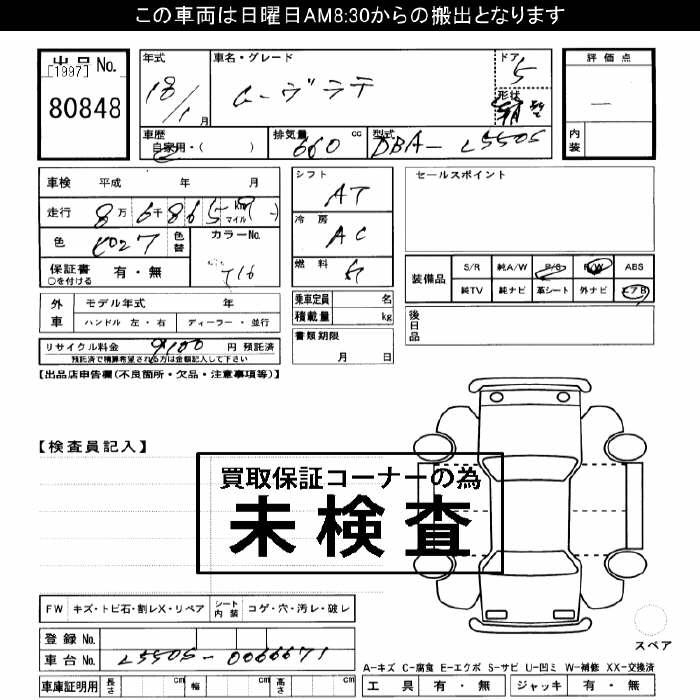 この車両は日曜日AM8:30からの搬出となります
出品 No.
[1997]
80848
年式
18/1 月
車名・グレード
ムーヴラテ
ドア
5
形状
評価点
—
内装
車歴
自家用・( )
排気量 cc
660
型式
DBA- L550S
車検 平成 年 月
走行 8万 6千 865 km マイル
色
色替
カラーNo.
T16
保証書
○を付ける
有・無
外車
モデル年式 年
ハンドル 左・右 ディーラー・並行
リサイクル料金 9100 円 預託済
預託済で精算希望される方は金額記入して下さい
シフト
AT
冷房
AC
燃料
乗車定員 名
積載量 kg
書類期限
月 日
セールスポイント
装備品
S/R 純A/W P/S P/W ABS
純TV 純ナビ 革シート 外ナビ エアB
後日品
【出品店申告欄(不良箇所・欠品・注意事項等)】
【検査員記入】
買取保証コーナーの為
未検査
FW キズ・トビ石・割レX・リペア シート内装 コゲ・穴・汚レ・破レ
登録 No.
車台 No. L550S-0066671
車庫証明用 長さ cm 幅 cm 高さ cm
スペア
A-キズ C-腐食 E-エクボ S-サビ U-凹ミ W-補修 XX-交換済
工具 有・無 ジャッキ 有・無